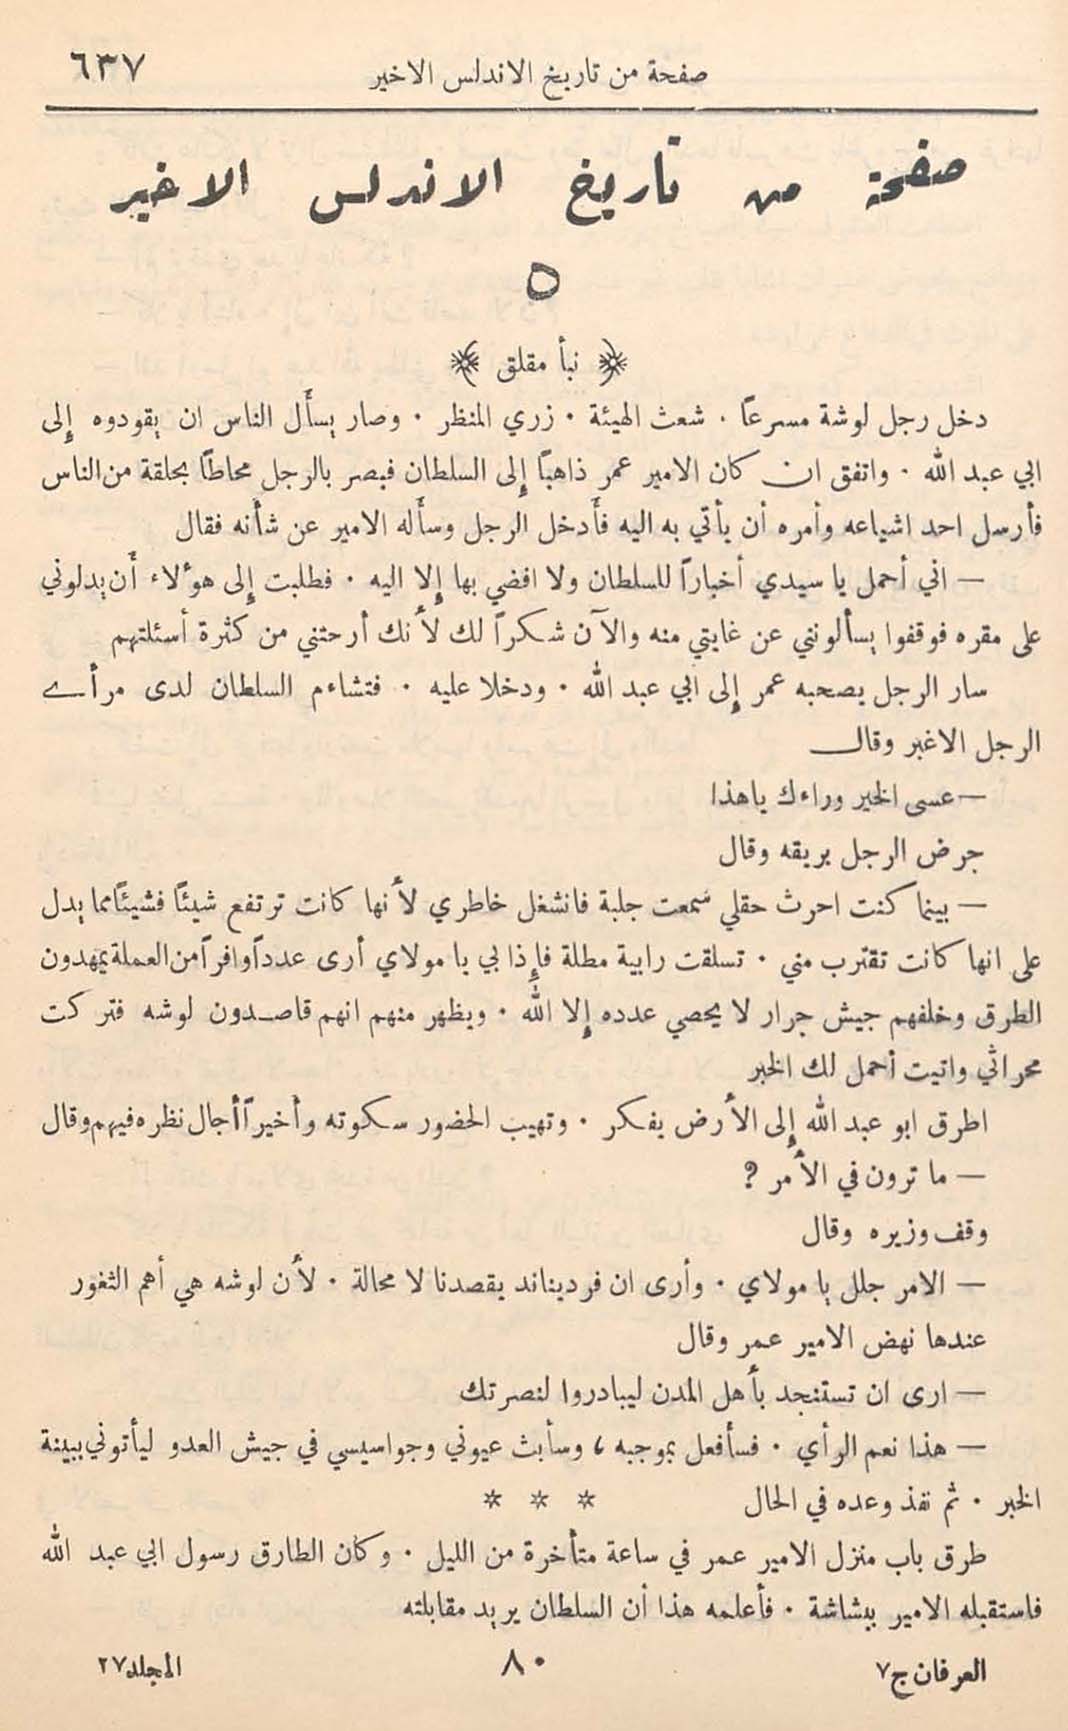 صفحة من تاريخ الاندلس الاخير ٦٣٧
صفحة من تاريخ الاندلس الاخير
٥
نبأ مقلق
دخل رجل لوشة مسرعاً . شعث الهيئة . زري المنظر . وصار يسأل الناس ان يقودوه إلى
ابي عبد الله . واتفق ان كان الامير عمر ذاهباً إلى السلطان فبصر بالرجل محاطاً بحلقة من الناس
فأرسل احد اشياعه وأمره أن يأتي به اليه فأدخل الرجل وسأله الامير عن شأنه فقال
— اني أحمل يا سيدي أخباراً للسلطان ولا افضي بها إلا اليه . فطلبت إلى هؤلاء أن يدلوني
على مقره فوقفوا يسألونني عن غايتي منه والآن شكراً لك لأنك أرحتني من كثرة أسئلتهم
سار الرجل يصحبه عمر إلى ابي عبد الله . ودخلا عليه . فتشاءم السلطان لدى مرأى
الرجل الاغبر وقال
— عسى الخير وراءك ياهذا
جرض الرجل بريقه وقال
— بينما كنت احرث حقلي سمعت جلبة فانشغل خاطري لأنها كانت ترتفع شيئاً فشيئاً مما يدل
على انها كانت تقترب مني . تسلقت رابية مطلة فإذا بي يا مولاي أرى عدداً وافراً من العملة يمهدون
الطرق وخلفهم جيش جرار لا يحصي عدده إلا الله . ويظهر منهم انهم قاصدون لوشه فتركت
محراثي واتيت أحمل لك الخبر
اطرق ابو عبد الله إلى الأرض يفكر . وتهيب الحضور سكوته وأخيراً أجال نظره فيهم وقال
— ما ترون في الأمر ؟
وقف وزيره وقال
— الامر جلل يا مولاي . وأرى ان فرديناند يقصدنا لا محالة . لأن لوشه هي أهم الثغور
عندها نهض الامير عمر وقال
— ارى ان تستنجد بأهل المدن ليبادروا لنصرتك
— هذا نعم الرأي . فسأفعل بموجبه ، وسأبث عيوني وجواسيسي في جيش العدو ليأتوني ببينة
الخبر . ثم نفذ وعده في الحال * * *
طرق باب منزل الامير عمر في ساعة متأخرة من الليل . وكان الطارق رسول ابي عبد الله
فاستقبله الامير ببشاشة . فأعلمه هذا أن السلطان يريد مقابلته
العرفان ج٧ ٨٠ المجلد ٢٧